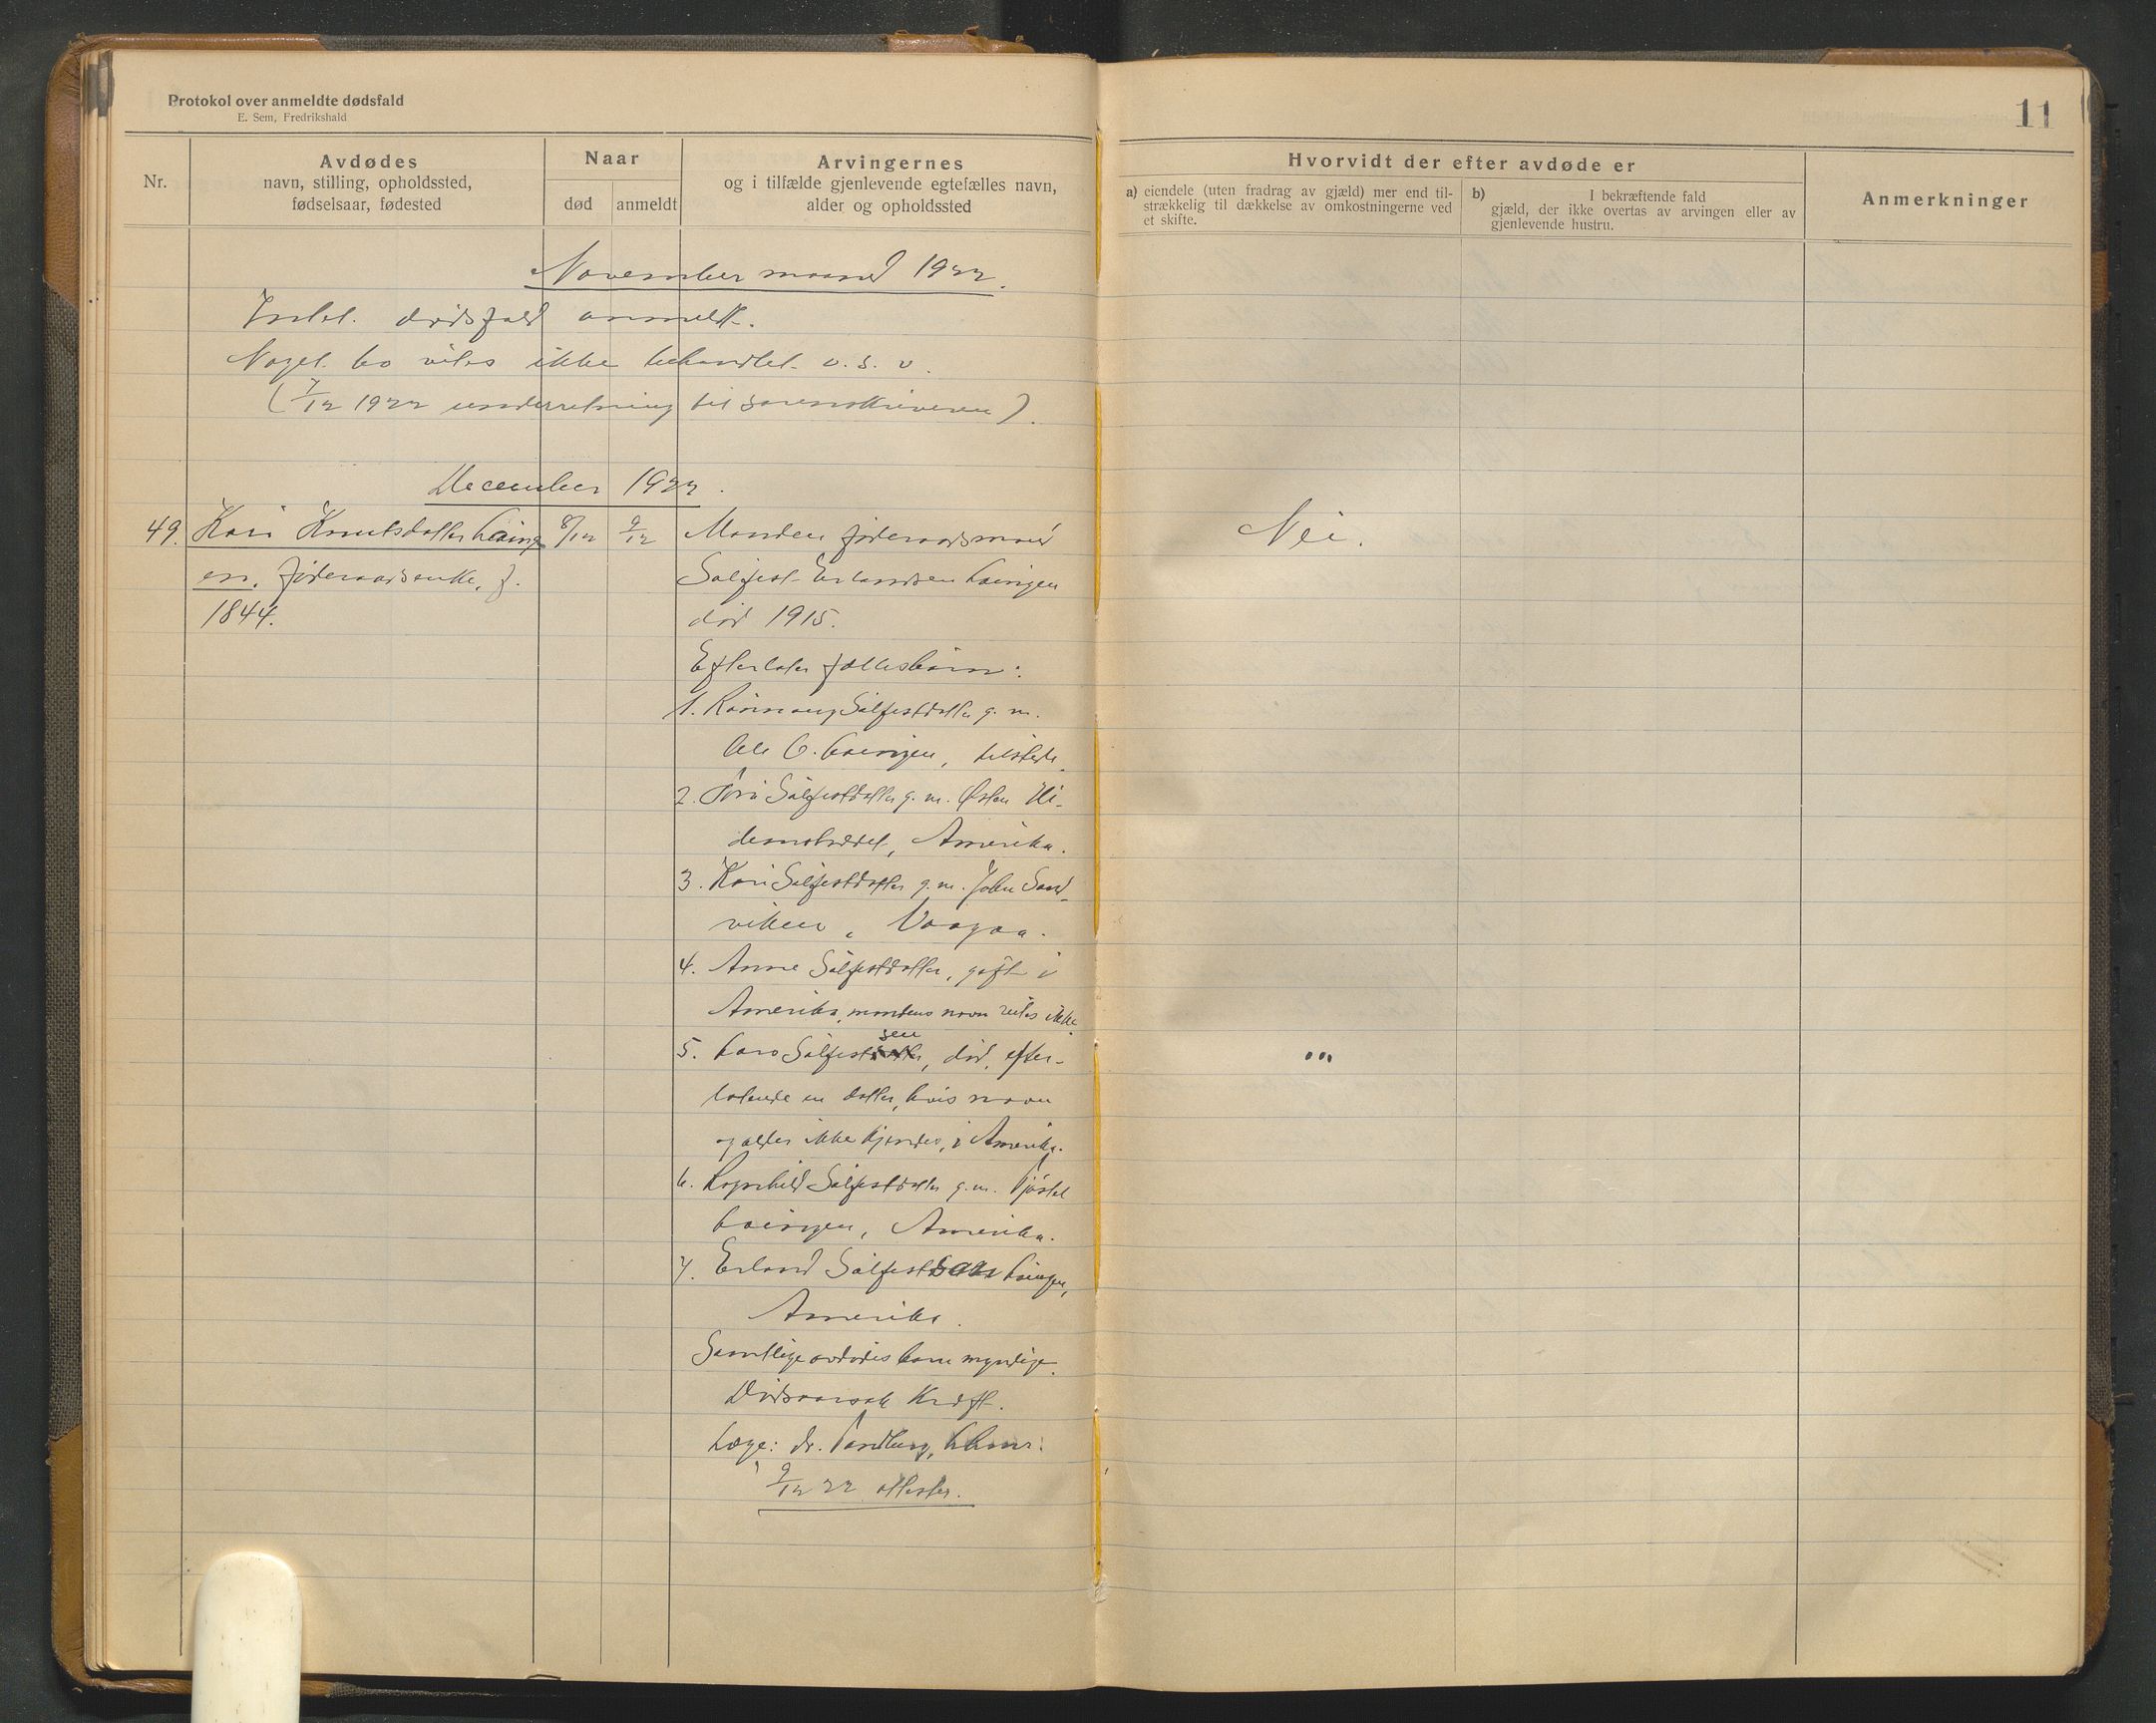 Protokol over anmeldte dødsfald
E. Sem, Fredrikshald
11
Nr.
Avdødes
navn, stilling, opholdssted,
fødselsaar, fødested
Naar
død
anmeldt
Arvingernes
og i tilfælde gjenlevende egtefælles navn,
alder og opholdssted
Hvorvidt der efter avdøde er
a) eiendele (uten fradrag av gjæld) mer end til-
strækkelig til dækkelse av omkostningerne ved
et skifte.
b) I bekræftende fald
gjæld, der ikke overtas av arvingen eller av
gjenlevende hustru.
Anmerkninger
November maaned 1922.
Intet dødsfald anmeldt.
Noget bo vites ikke behandlet o.s.v.
(7/12 1922 underretning til sorenskriveren).
December 1922.
49. Kari Knutsdatter Loeing
en, føderaadsenke, f.
1844.
8/12
9/12
Manden føderaadsmand
Sølfest Erlandsen Loeingen
død 1915.
Efterlater fællesbarn:
1. Rønnaug Sølfestdatter g. m.
Ole O. Loeingen, tilstede.
2. Tora Sølfestdatter g. m. Østen
Amerika.
3. Kari Sølfestdatter g. m. John Sand-
viken, Vaagaa.
4. Anne Sølfestdatter, gift i
Amerika, mandens navn vites ikke.
5. Lars Sølfestsen, død, efter-
latende en datter, hvis navn
og alder ikke kjendes, i Amerika.
6. Ragnhild Sølfestdatter g. m. Tjøstel
Loeingen, Amerika.
7. Erland Sølfestsen Loeingen,
Amerika.
Samtlige avdødes barn myndige.
Dødsaarsak Kræft.
Læge: dr. Sandberg,
9/12 22 attester.
Nei.
"